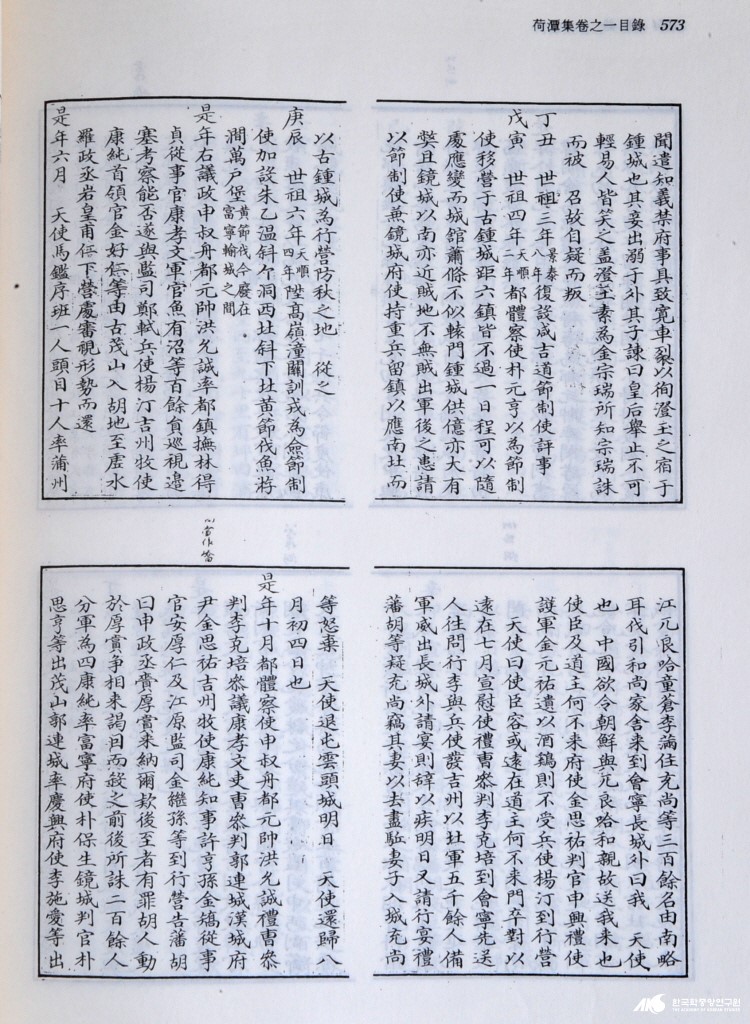 荷潭集卷之一目錄 573
聞遣知義禁府事具致寬車裂以徇澄玉之宿于
鍾城也其妾出溺于外其子諫曰皇后舉止不可
輕易人皆笑之盖澄玉素為金宗瑞所知宗瑞誅
而被 召故自疑而叛
丁丑 世祖三年景泰八年復設咸吉道節制使評事
戊寅 世祖四年天順二年都體察使朴元亨以為節制
使移營于古鍾城距六鎮皆不過一日程可以隨
處應變而城館蕭條不似轅門鍾城供億亦大有
獘且鏡城以南亦近賊地不無賊出軍後之患請
以節制使兼鏡城府使持重兵留鎮以應南北而
以古鍾城為行營防秋之地 從之
庚辰 世祖六年天順四年陞高嶺潼關訓戎為僉節制
使加設朱乙溫斜亇洞西北斜下北黃節伐魚游
澗萬戶堡黃節伐今廢在富寧輸城之間
是年右議政申叔舟都元帥洪允誠率都鎮撫林得
貞從事官康孝文軍官魚有沼等百餘負巡視邉
塞考察能否遂與監司鄭軾兵使楊汀吉州牧使
康純首領官金好仁等由古茂山入胡地至虛水
羅政丞岩皇甫仁下營處審視形勢而還
是年六月 天使馬鑑序班一人頭目十人率蒲州
江兀良哈童蒼李滿住充尚等三百餘名由南略
耳伐引和尚家舍来到會寧長城外曰我 天使
也 中國欲令朝鮮與兀良哈和親故送我来也
使臣及道主何不来府使金思祐判官申興禮使
護軍金元祐遺以酒鷄則不受兵使楊汀到行營
天使曰使臣容或遠在道主何不来門卒對以
遠在七月宣慰使禮曹叅判李克培到會寧先送
人往問行李與兵使發吉州以北軍五千餘人備
軍威出長城外請宴則辞以疾明日又請行宴禮
藩胡等疑充尚竊其妻以去盡駈妻子入城充尚
等怒棄 天使退屯雲頭城明日 天使還歸八
月初四日也
是年十月都體察使申叔舟都元帥洪允誠禮曹叅
判李克培叅議康孝文吏曹叅判郭連城漢城府
尹金思祐吉州牧使康純知事許亨孫金㺩從事
官安厚仁及江原監司金繼孫等到行營告藩胡
曰申政丞賷厚賞来納爾欵後至者有罪胡人動
於厚賞争相来謁因而殺之前後所誅二百餘人
分軍為四康純率富寧府使朴保生鏡城判官朴
思亨等出茂山郭連城率慶興府使李施愛等出
한국학중앙연구원
THE ACADEMY OF KOREAN STUDIES